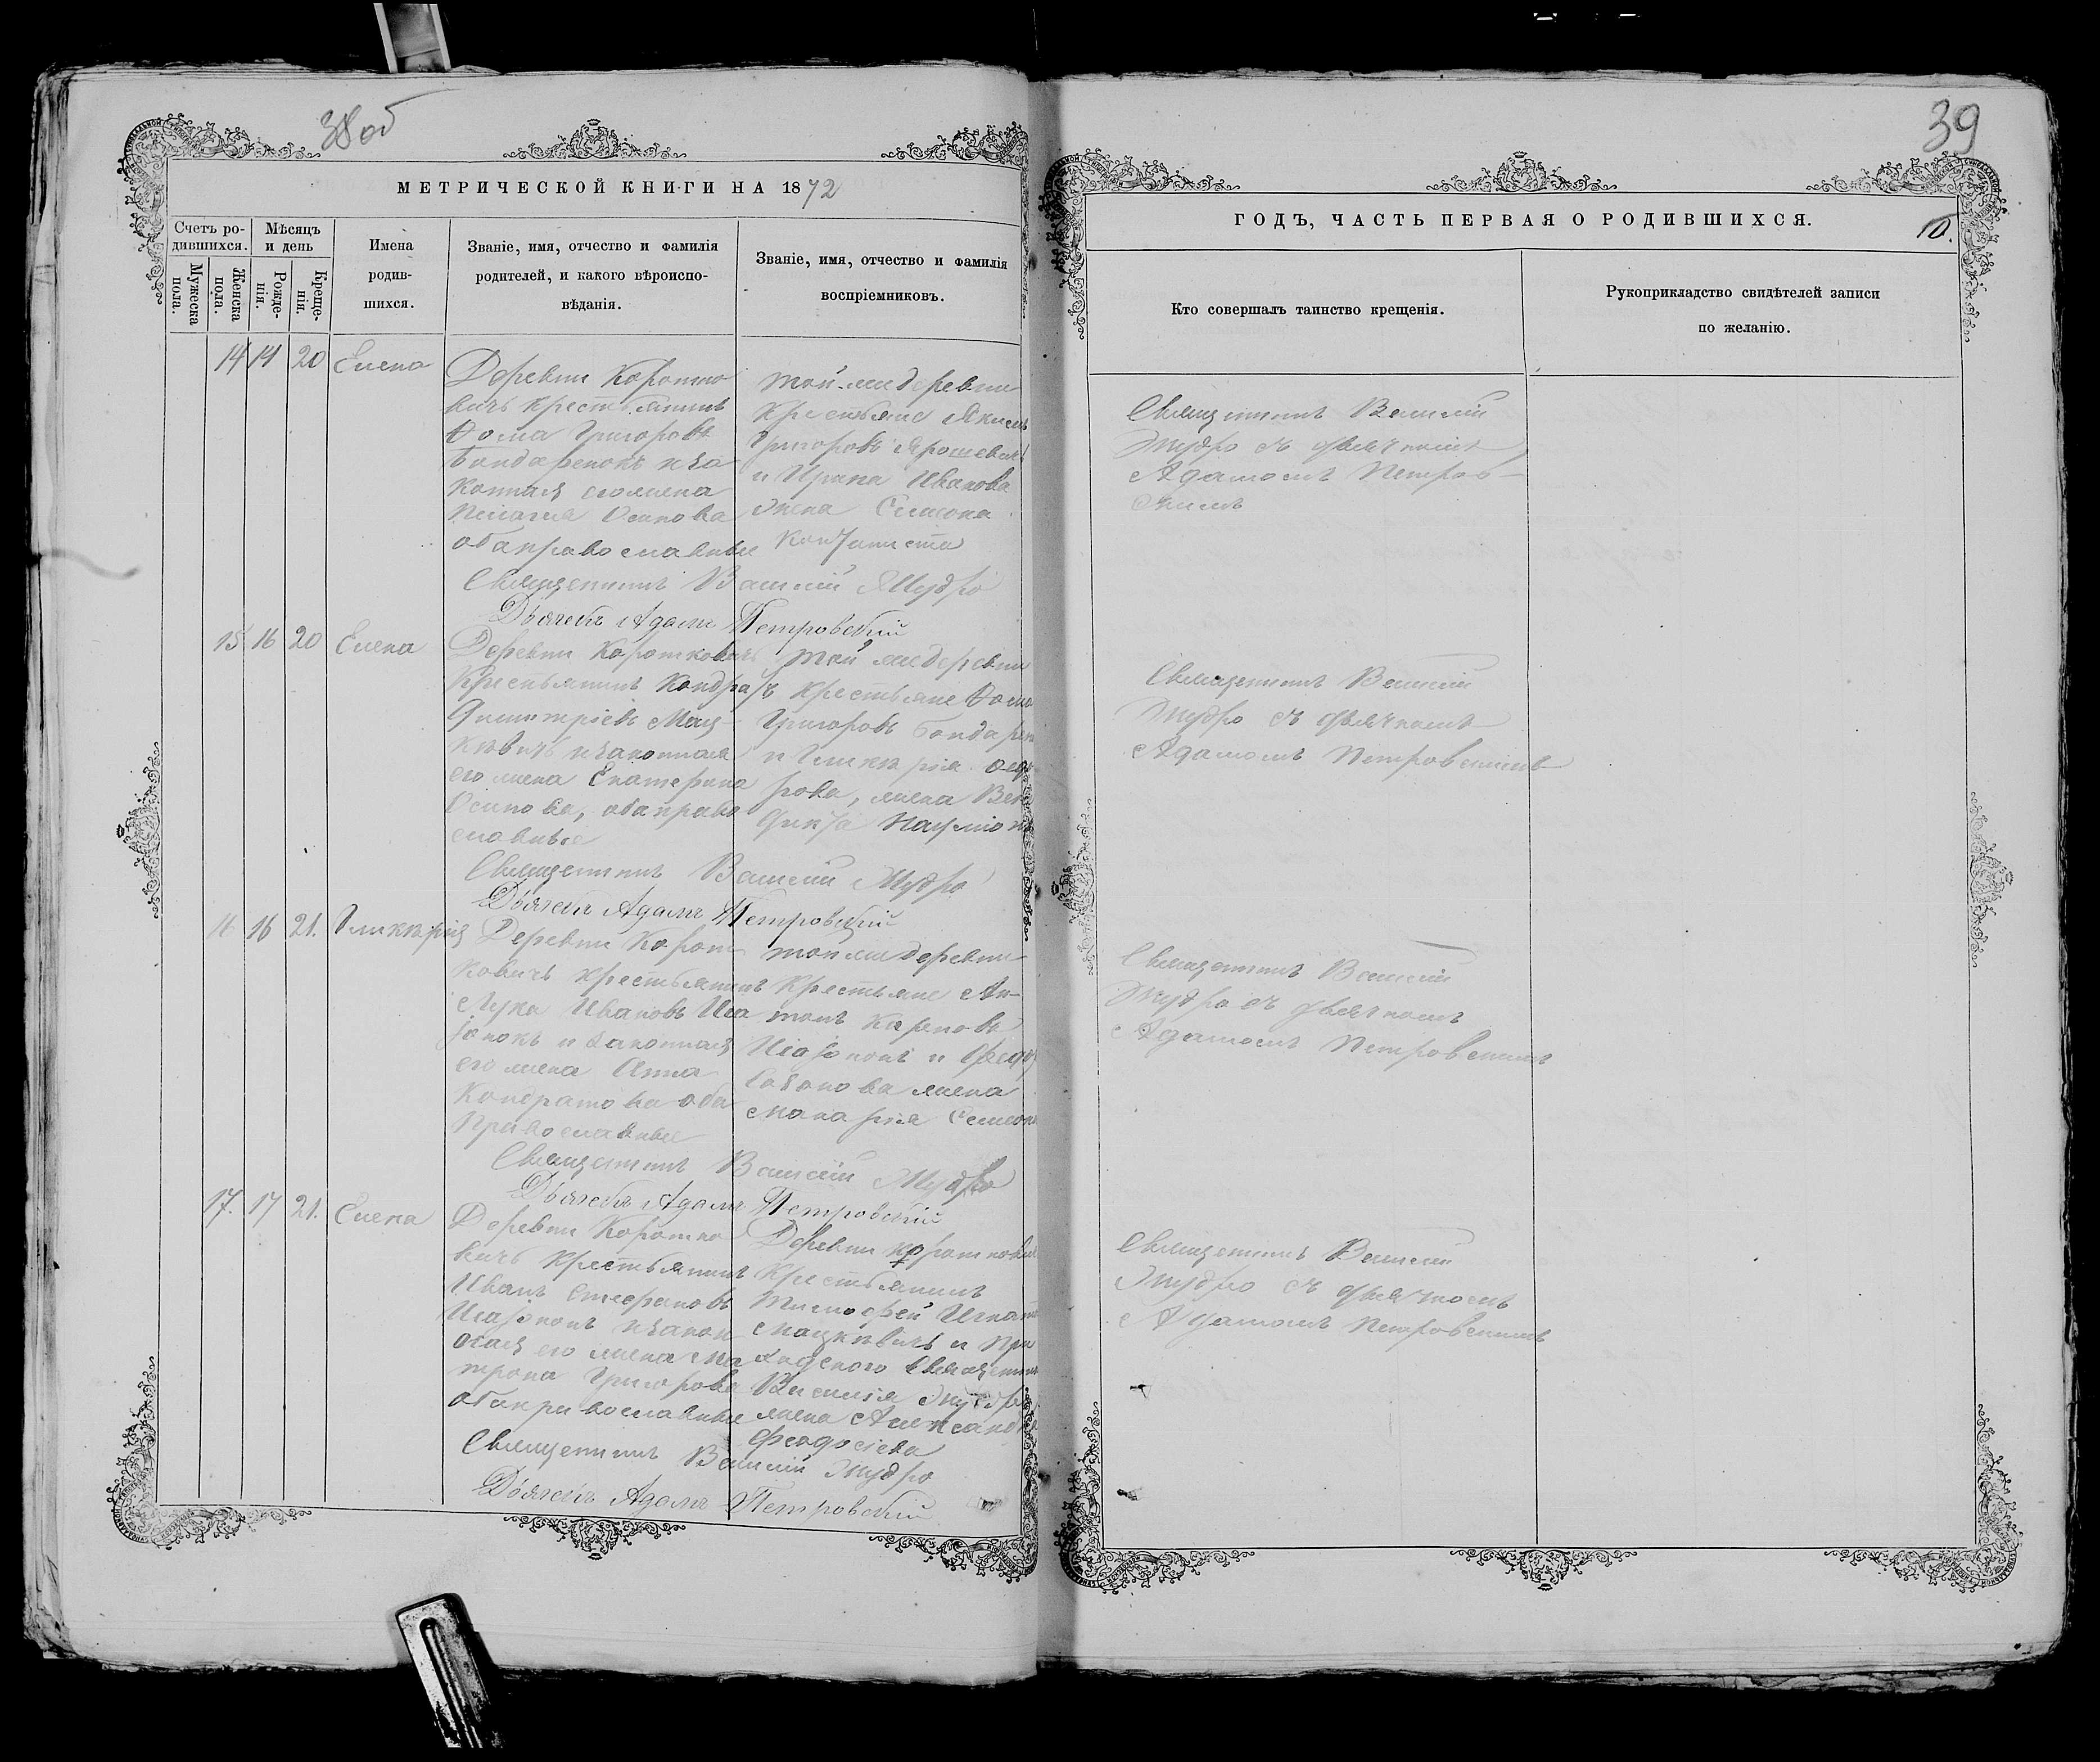 38об
МЕТРИЧЕСКОЙ КНИГИ НА 1872
Счетъ ро-
дившихся.
Мѣсяцъ
и день
Мужеска
пола.
Женска
пола.
Рожде-
нія.
Креще-
нія.
Имена
родив-
шихся.
Званіе, имя, отчество и фамилія
родителей, и какого вѣроиспо-
вѣданія.
Званіе, имя, отчество и фамилія
воспріемниковъ.
14 14 20 Елена
Деревни Коротко
вичъ крестьянинъ
Ѳома Григоровъ
Бондаренокъ и за
конная его жена
Пелагея Осипова
оба православные
той-же деревни
Крестьяне Якимъ
Григоровъ Ярошевичъ
и Ирина Иванова
жена Симеона
Священникъ Василій Мудро
Дьячекъ Адамъ Петровскій
15 16 20 Елена
Деревни Коротковичъ
Крестьянинъ Кондратъ
Димитріевъ Мац-
кѣвичъ и законная
его жена Екатерина
Осипова, оба право
славные
той же деревни
крестьяне Ѳома
Григоровъ Бондарен
и Гликерія Ѳедо
рова, жена Вене
дикта
Священникъ Василій Мудро
Дьячекъ Адамъ Петровскій
16 16 21. Гликерія
Деревни Корот
ковичъ крестьянинъ
Лука Ивановъ
и законная
его жена Анна
Кондратова оба
Православные
той же деревни
Крестьяне Ан-
тонъ Карповъ
жена
Макарія Симеон
Священникъ Василій Мудро
Дьячекъ Адамъ Петровскій
17. 17 21. Елена
Деревни Коротко
вичъ Крестьянинъ
Иванъ Стефановъ
и закон
ная его жена Ма
трона Григорова
оба православные
Деревни Коротковичъ
Крестьянинъ
Тимофей Игнат
Мацкѣвичъ и При
ходского Священник
Василія Мудро
жена Александра
Феодосіева
Священникъ Василій Мудро
Дьячекъ Адамъ Петровскій
39
ГОДЪ, ЧАСТЬ ПЕРВАЯ О РОДИВШИХСЯ.
10.
Кто совершалъ таинство крещенія.
Рукоприкладство свидѣтелей записи
по желанію.
Священникъ Василій
Мудро съ дьячкомъ
Адамомъ Петров-
скимъ
Священникъ Василій
Мудро съ дьячкомъ
Адамомъ Петровскимъ
Священникъ Василій
Мудро съ дьячкомъ
Адамомъ Петровскимъ
Священникъ Василій
Мудро съ дьячкомъ
Адамомъ Петровскимъ